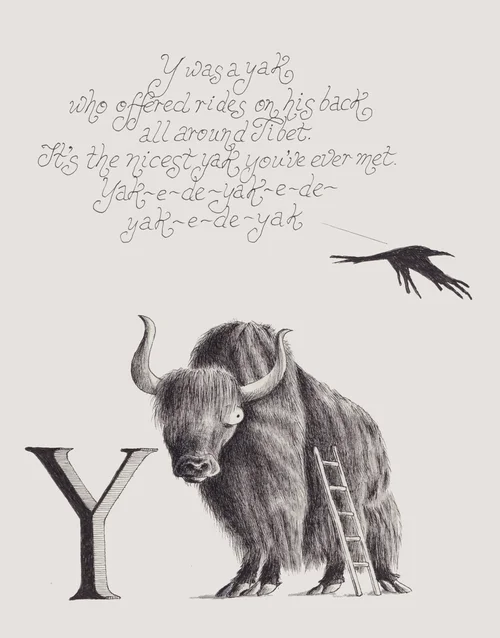 Y was a yak
who offered rides on his back
all around Tibet.
It's the nicest yak you've ever met.
Yak-e-de-yak-e-de-
yak-e-de-yak
Y